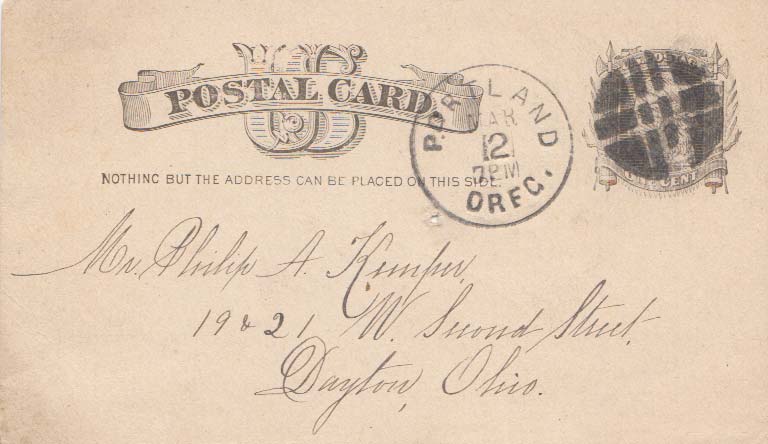 US
POSTAL CARD
NOTHING BUT THE ADDRESS CAN BE PLACED ON THIS SIDE.
PORTLAND
MAR
12
7PM
OREG.
CENT
Mr. Philip A. Kemper,
19 & 21 W. Second Street,
Dayton, Ohio.